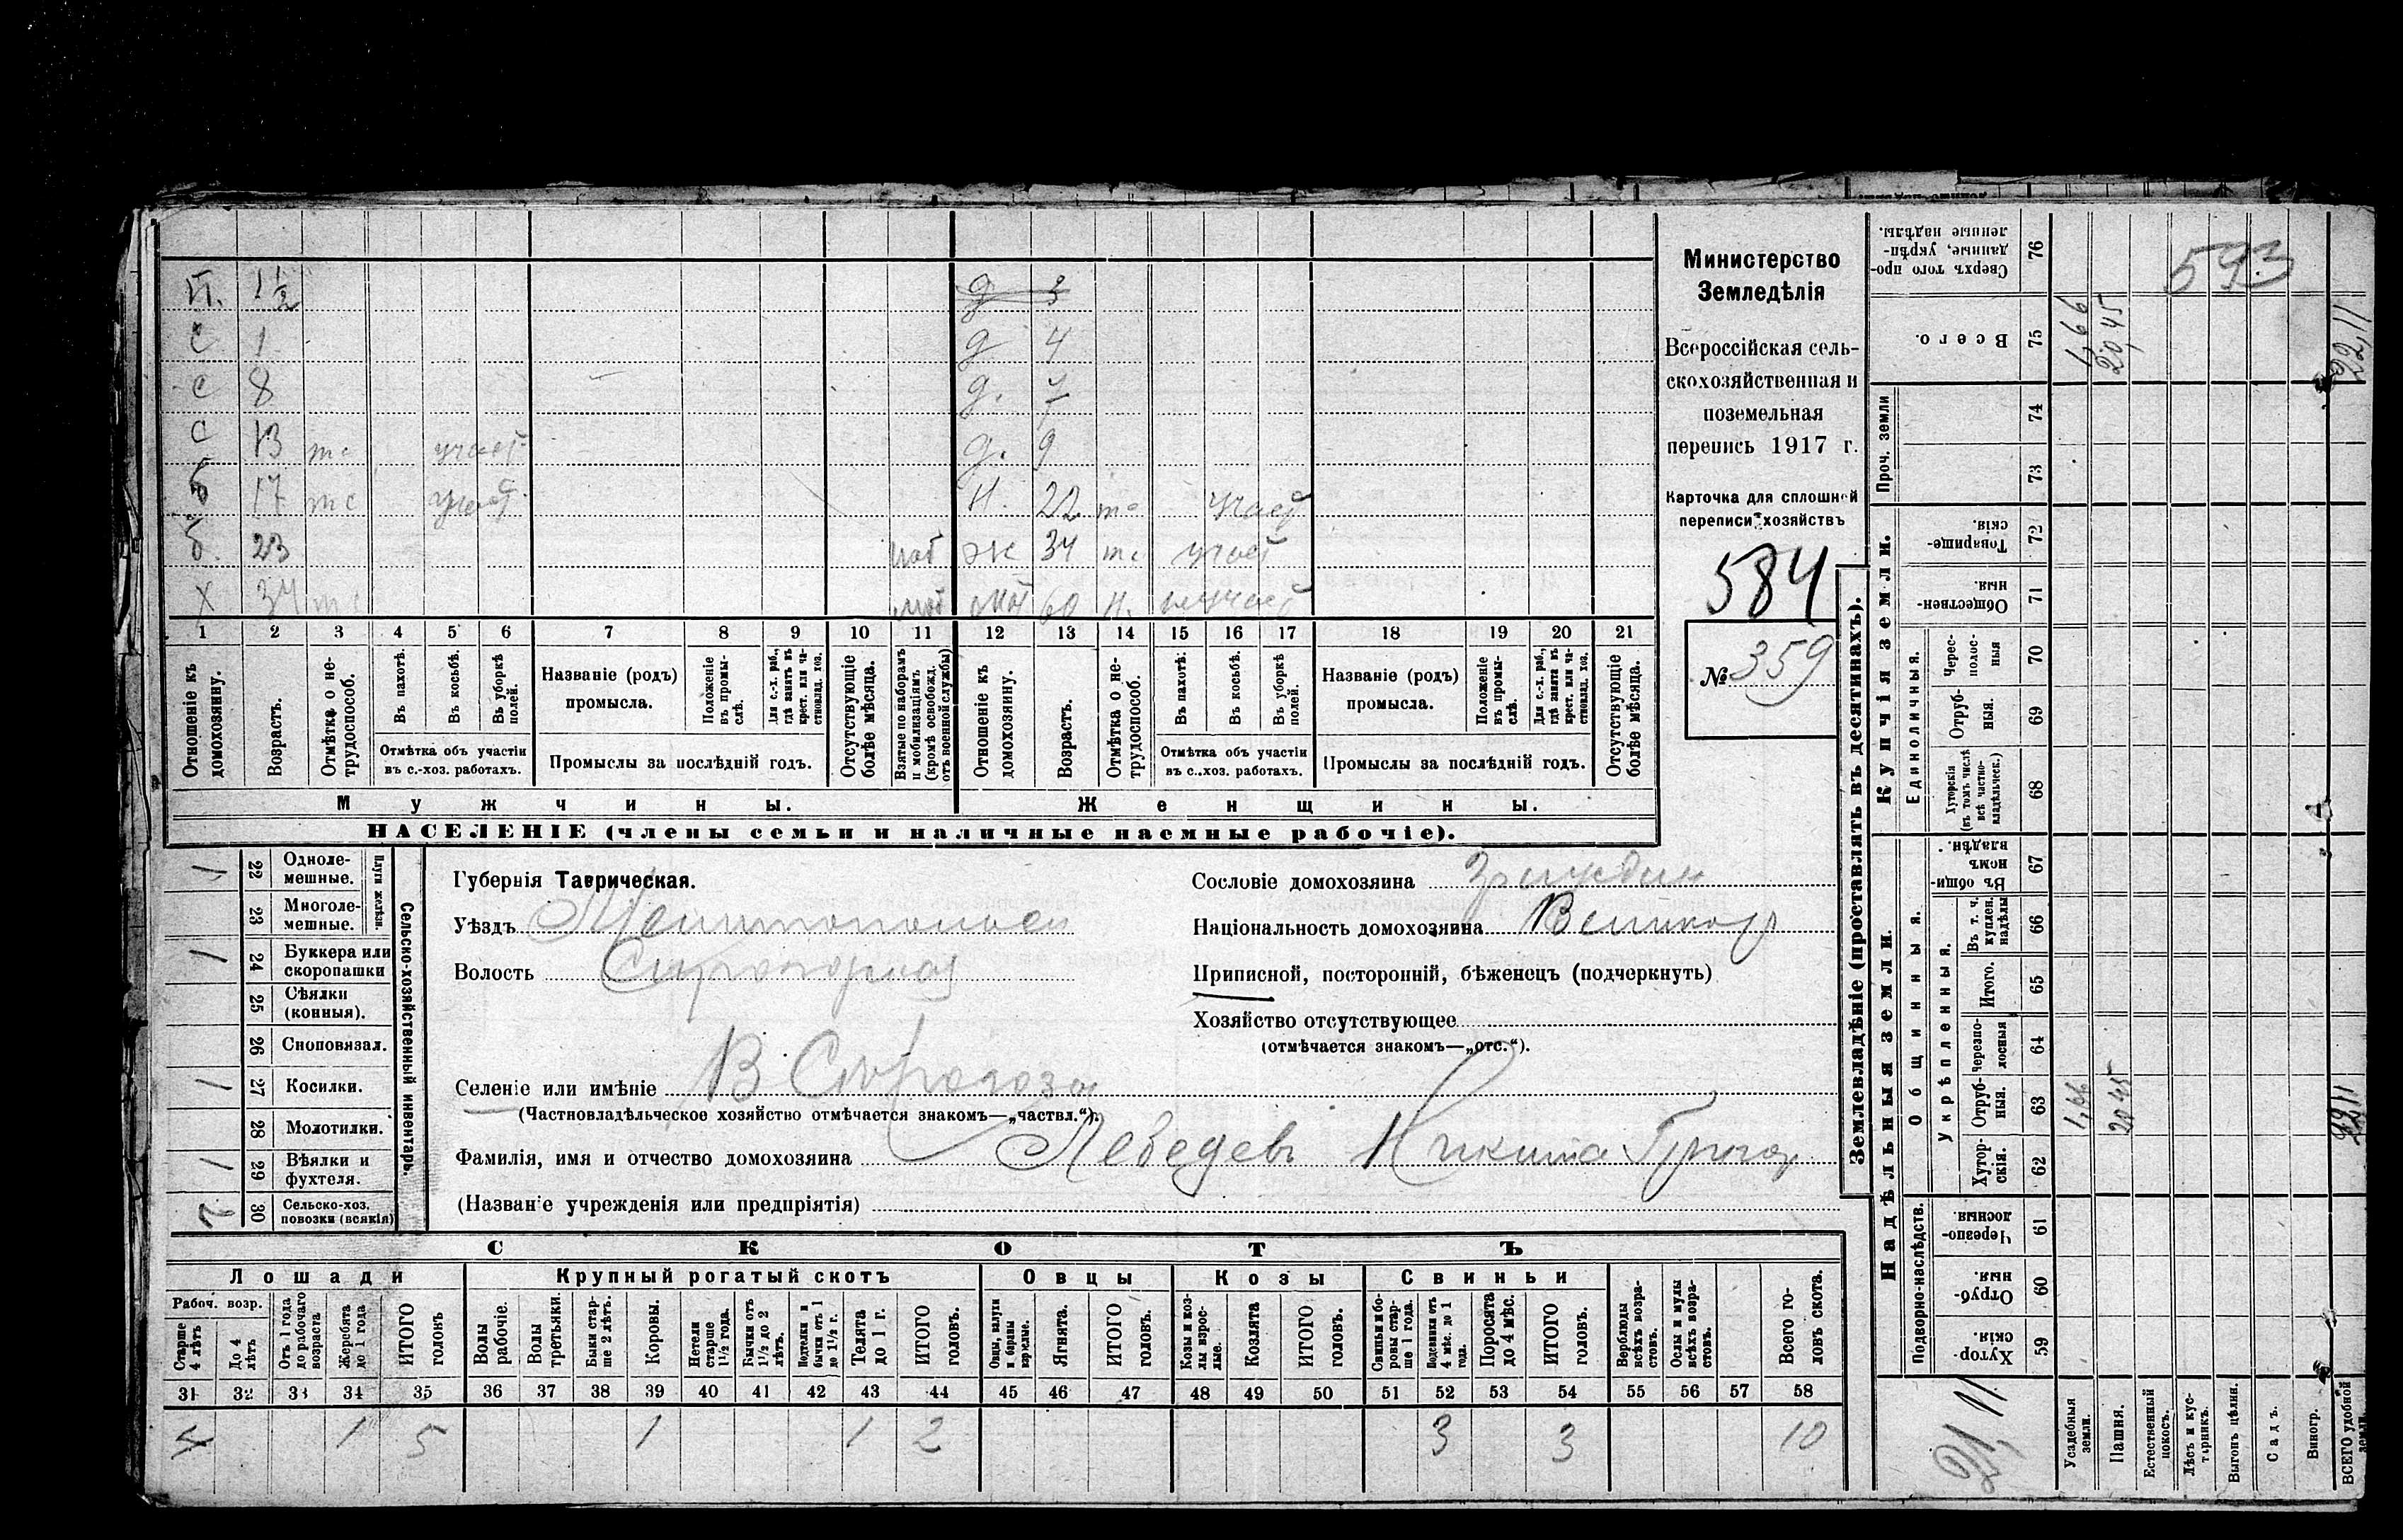 П. 1 1/2
с 1
с 8
с 13 тс участ
б 17 тс участ
б. 23 моб
х 34 тс моб
д 3
д 4
д. 7
д. 9
н. 22 тс участ
ж 34 тс участ
мат 60 н. неучаст
1 2 3 4 5 6 7 8 9 10 11 12 13 14 15 16 17 18 19 20 21
Отношеніе къ домохозяину.
Возрастъ.
Отмѣтка о нетрудоспособ.
Въ пахотѣ.
Въ косьбѣ.
Въ уборкѣ полей.
Отмѣтка объ участіи
въ с.-хоз. работахъ.
Названіе (родъ)
промысла.
Положеніе въ промыслѣ.
Для с.-х. раб., гдѣ занятъ въ крест. или частновлад. хоз.
Промыслы за послѣдній годъ.
Отсутствующіе болѣе мѣсяца.
Взятые по наборамъ и мобилизаціямъ (кромѣ освобожд. отъ военной службы)
Отношеніе къ домохозяину.
Возрастъ.
Отмѣтка о нетрудоспособ.
Въ пахотѣ.
Въ косьбѣ.
Въ уборкѣ полей.
Отмѣтка объ участіи
въ с.-хоз. работахъ.
Названіе (родъ)
промысла.
Положеніе въ промыслѣ.
Для с.-х. раб., гдѣ занята въ крест. или частновлад. хоз.
Промыслы за послѣдній годъ.
Отсутствующіе болѣе мѣсяца.
Мужчины.
Женщины.
НАСЕЛЕНІЕ (члены семьи и наличные наемные рабочіе).
Министерство
Земледѣлія
Всероссійская сель-
скохозяйственная и
поземельная
перепись 1917 г.
Карточка для сплошной
переписи хозяйствъ
584
№ 359
Сельско-хозяйственный инвентарь.
Плуги желѣзн.
1 22 Однолемешные.
23 Многолемешные.
1 24 Буккера или скоропашки
25 Сѣялки (конныя).
26 Сноповязал.
1 27 Косилки.
28 Молотилки.
1 29 Вѣялки и фухтеля.
2 30 Сельско-хоз. повозки (всякія)
Губернія Таврическая.
Уѣздъ Мелитопольск
Волость Сирогозская
Селеніе или имѣніе В Сирогозы
(Частновладѣльческое хозяйство отмѣчается знакомъ—„частвл.“).
Фамилія, имя и отчество домохозяина Лебедевъ Никита Григор
(Названіе учрежденія или предпріятія)
Сословіе домохозяина
Національность домохозяина Великор
Приписной, посторонній, бѣженецъ (подчеркнуть)
Хозяйство отсутствующее
(отмѣчается знакомъ—„отс.“).
СКОТЪ
Лошади
Крупный рогатый скотъ
Овцы
Козы
Свиньи
Рабоч. возр.
Старше 4 лѣтъ
До 4 лѣтъ
Отъ 1 года до рабочаго возраста
Жеребята до 1 года
ИТОГО головъ
Волы рабочіе.
Волы третьяки.
Быки старше 2 лѣтъ.
Коровы.
Нетели старше 1½ года.
Бычки отъ 1½ до 2 лѣтъ.
Подтелки и бычки отъ 1 до 1½ г.
Телята до 1 г.
ИТОГО головъ.
Овцы, валухи и бараны взрослые.
Ягнята.
ИТОГО головъ.
Козы и козлы взрослые.
Козлята
ИТОГО головъ.
Свиньи и боровы старше 1 года.
Подсвинки отъ 4 мѣс. до 1 года.
Поросята до 4 мѣс.
ИТОГО головъ.
Верблюды всѣхъ возрастовъ.
Ослы и мулы всѣхъ возрастовъ.
Всего головъ скота.
31 32 33 34 35 36 37 38 39 40 41 42 43 44 45 46 47 48 49 50 51 52 53 54 55 56 57 58
4 1 5 1 1 2 3 3 10
Землевладѣніе (проставлять въ десятинахъ).
Купчія земли.
Надѣльныя земли.
Сверхъ того проданные, укрѣпленные надѣлы. 76
593
Всего. 75 1,66 20,45 22,11
Проч. земли 74
73
Товарищескія. 72
Общественныя 71
Единоличныя.
Чересполосныя 70
Отрубныя. 69
Хуторскія (въ томъ числѣ всѣ частновладѣльческ.) 68
Общинныя.
Въ общинномъ владѣн. 67
Укрѣпленныя.
Въ т. ч. куплен. надѣлы 66
Итого. 65
Черезполосныя 64
Отрубныя. 63 1,66 20 45 22 11
Хуторскія. 62
Подворно-наслѣдств.
Черезполосныя. 61
Отрубныя 60
Хуторскія. 59
Усадебныя земли.
Пашня.
Естественный покосъ.
Лѣсъ и кустарникъ.
Выгонъ цѣлин.
Садъ.
Виногр.
ВСЕГО удобной земли.